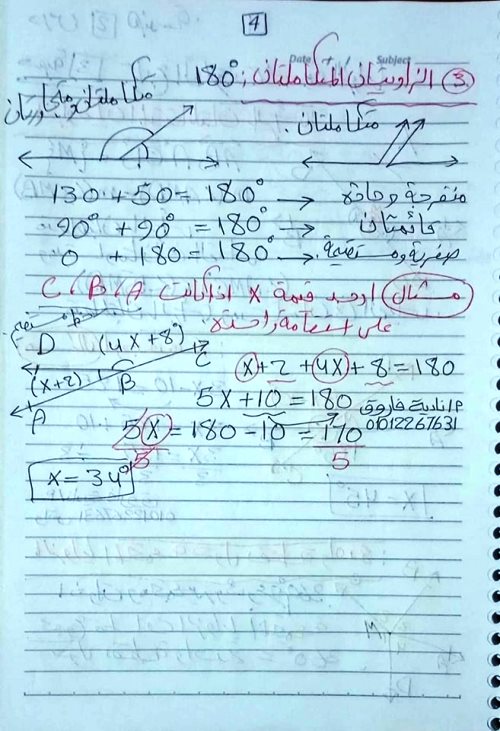 4
Date / / Subject
③ الزاويتان المتكاملتان: 180°
متكاملتان ومتجاورتان
متكاملتان.
130 + 50 = 180° → منفرجة وحادة
90° + 90° = 180° → قائمتان
0 + 180 = 180° → صفرية ومستقيمة.
مثال اوجد قيمة X اذا كانت A, B, C
على استقامة واحدة
D (4X+8°) C
(X+2) B
A
X+2 +4X+8=180
5X+10=180
أ/ نادية فاروق
01012267631
5X=180-10=170
5 5
X=34°
M